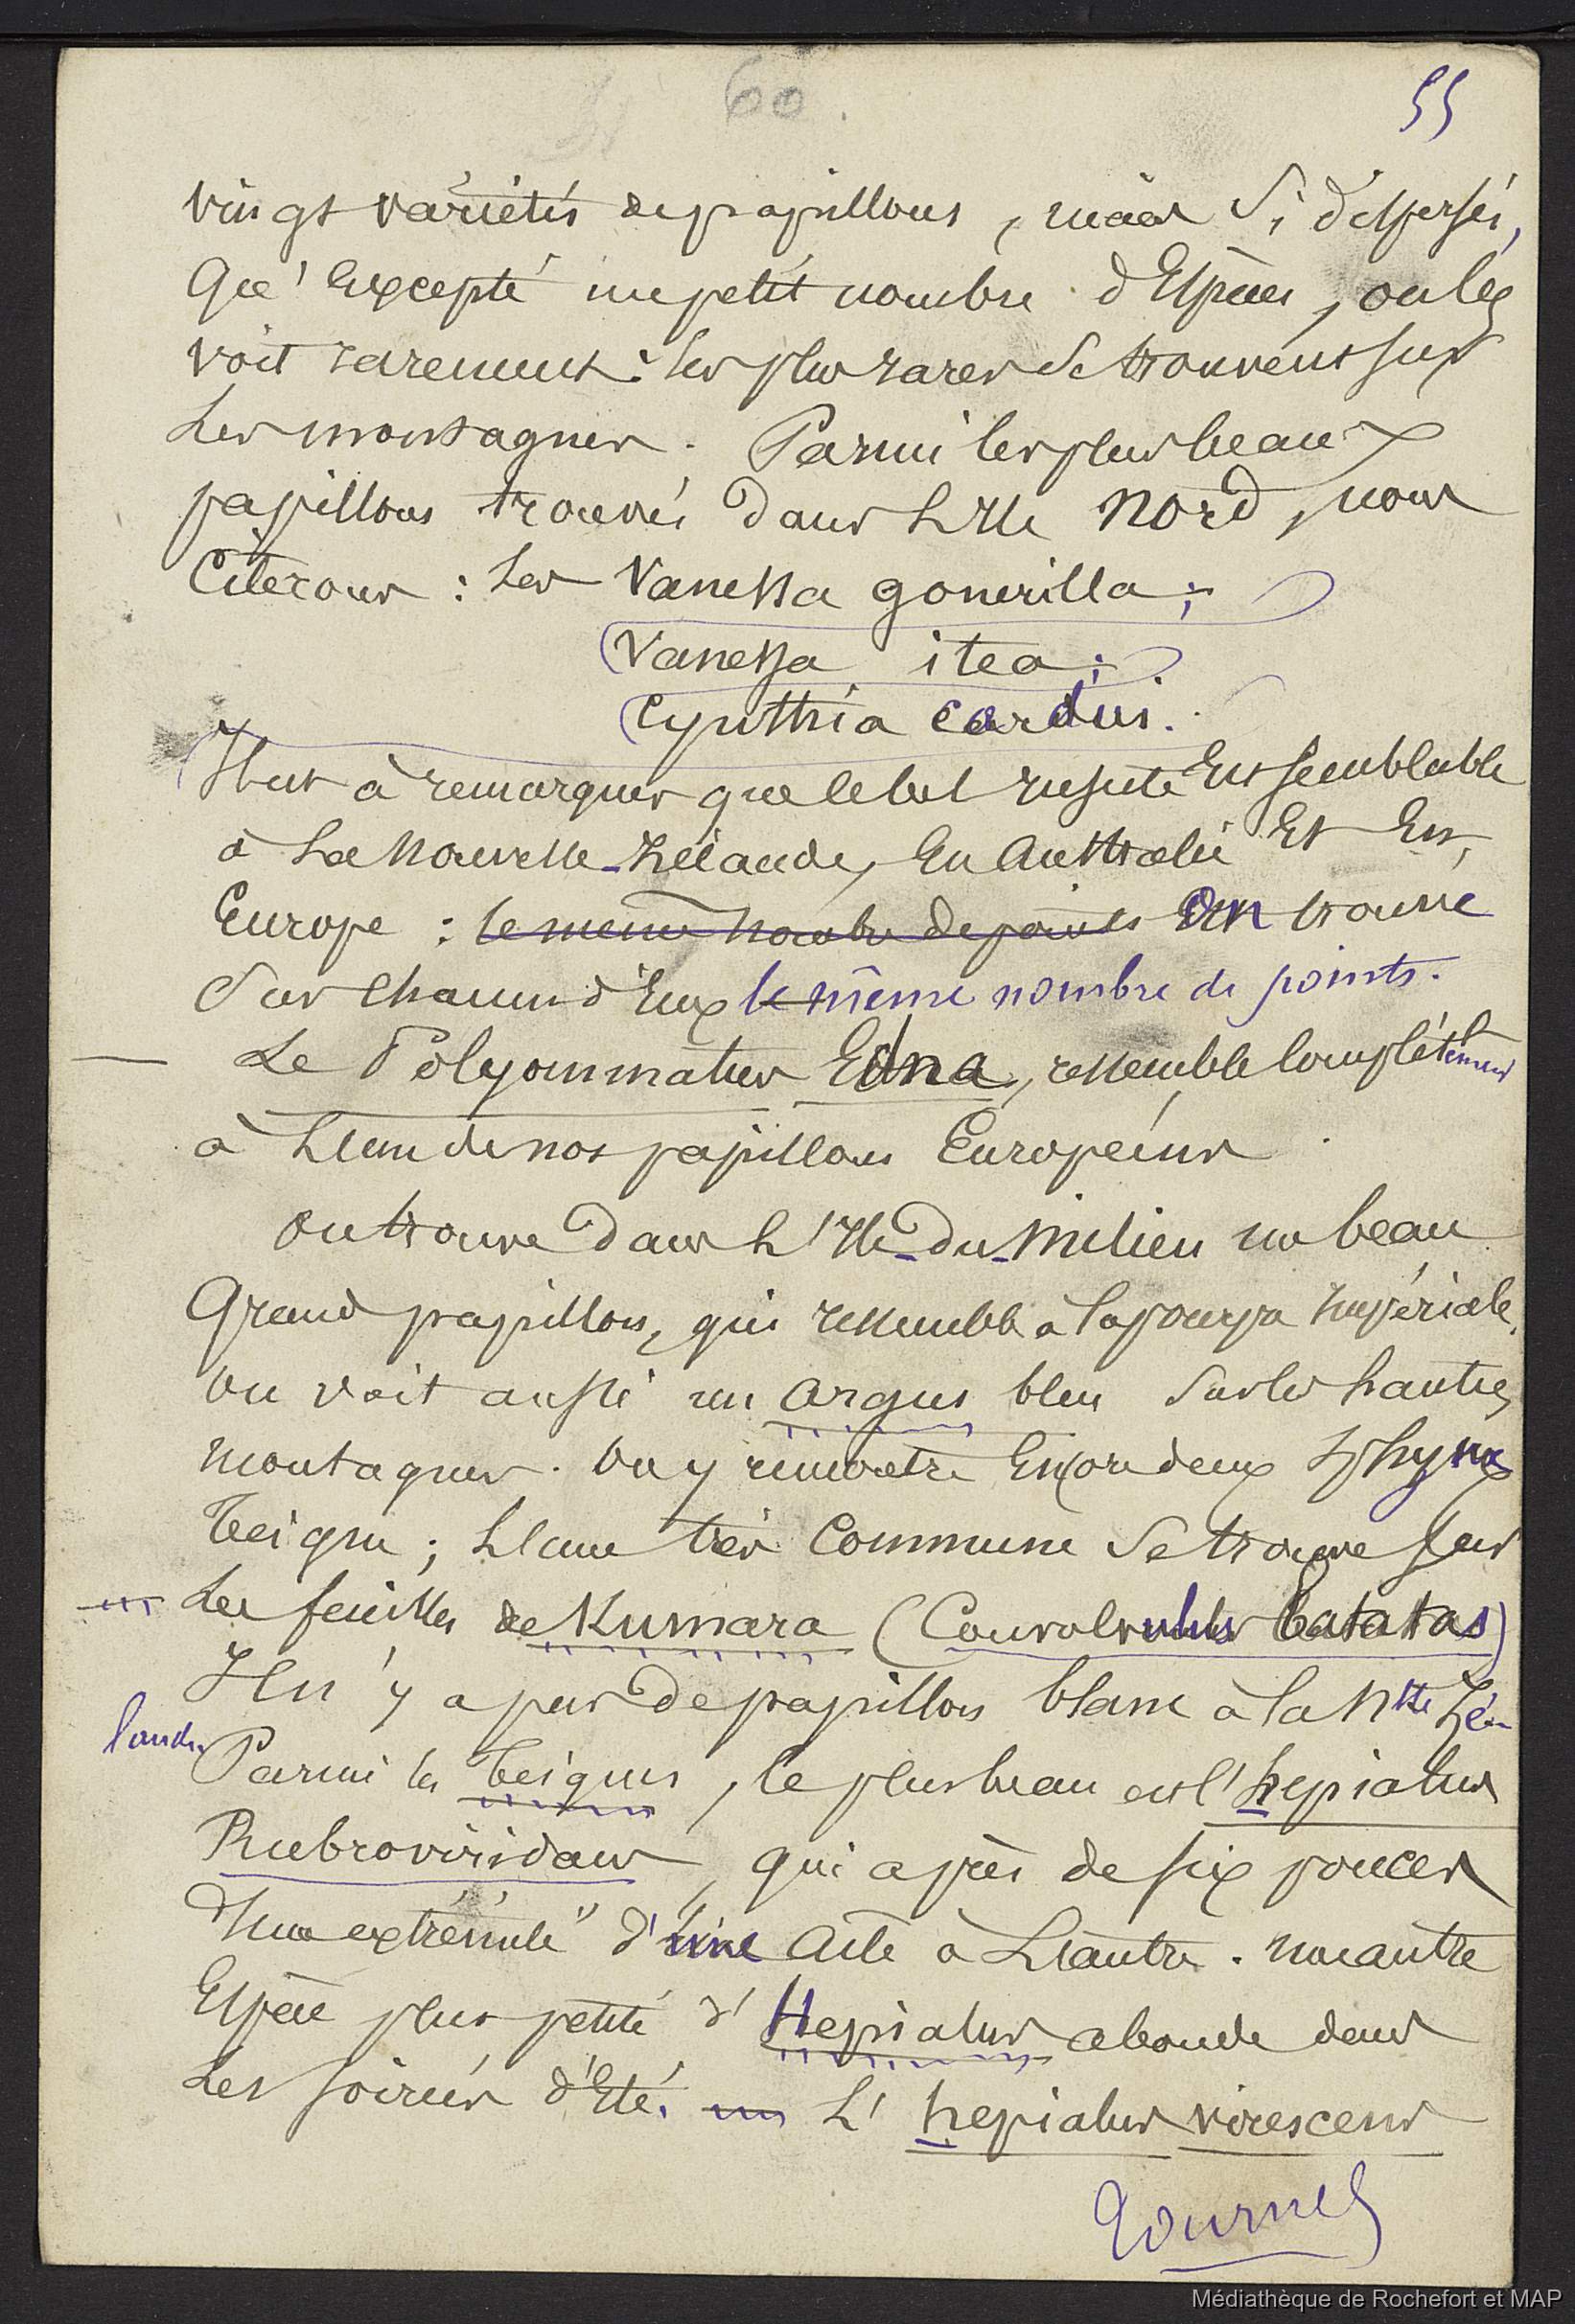 60.
55
vingt variétés de papillons, mais si dispersés,
Qu'excepté un petit nombre d'Espèces, on les
voit rarement : les plus rares se trouvent sur
Les montagnes. Parmi les plus beaux
papillons trouvés dans L'Ile Nord, nous
Citerons : Les Vanessa gonerilla ;
Vanessa itea ;
Cynthia cardui.
Il est à remarquer que le bel insecte est semblable
à La Nouvelle-Zélande, En Australie Et En
Europe : le même nombre de points On trouve
Sur chacun d'Eux le même nombre de points.
Le Polyommatus Edna, ressemble complétement
à L'un de nos papillons Européens
On trouve dans L'Ile-du-Milieu un beau
Grand papillon, qui ressemble à la pourpre impériale.
On voit aussi un Argus bleu Sur les hautes
montagnes. On y rencontre Encore deux Sphynx
Teigne ; L'une très Commune Se trouve sur
Les feuilles de Kumara (Convolvulus batatas)
Il n'y a pas de papillon blanc à la Nlle Zé-
lande.
Parmi les Teignes, le plus beau est l'hepialus
Rubroviridans, qui a près de six pouces
d'une extrémité d'une Aile à L'autre. Une autre
Espèce plus petite d'Hepialus abonde dans
Les soirées d'Eté. L'hepialus virescens
Tournez
Médiathèque de Rochefort et MAP